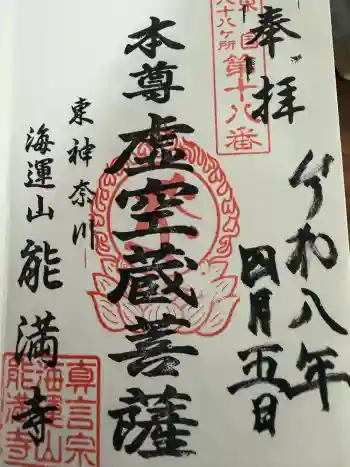 奉拝
東国
八十八ヶ所
第十八番
令和八年
四月五日
本尊
虚空蔵菩薩
東神奈川
海運山
能満寺
真言宗
海運山
能満寺